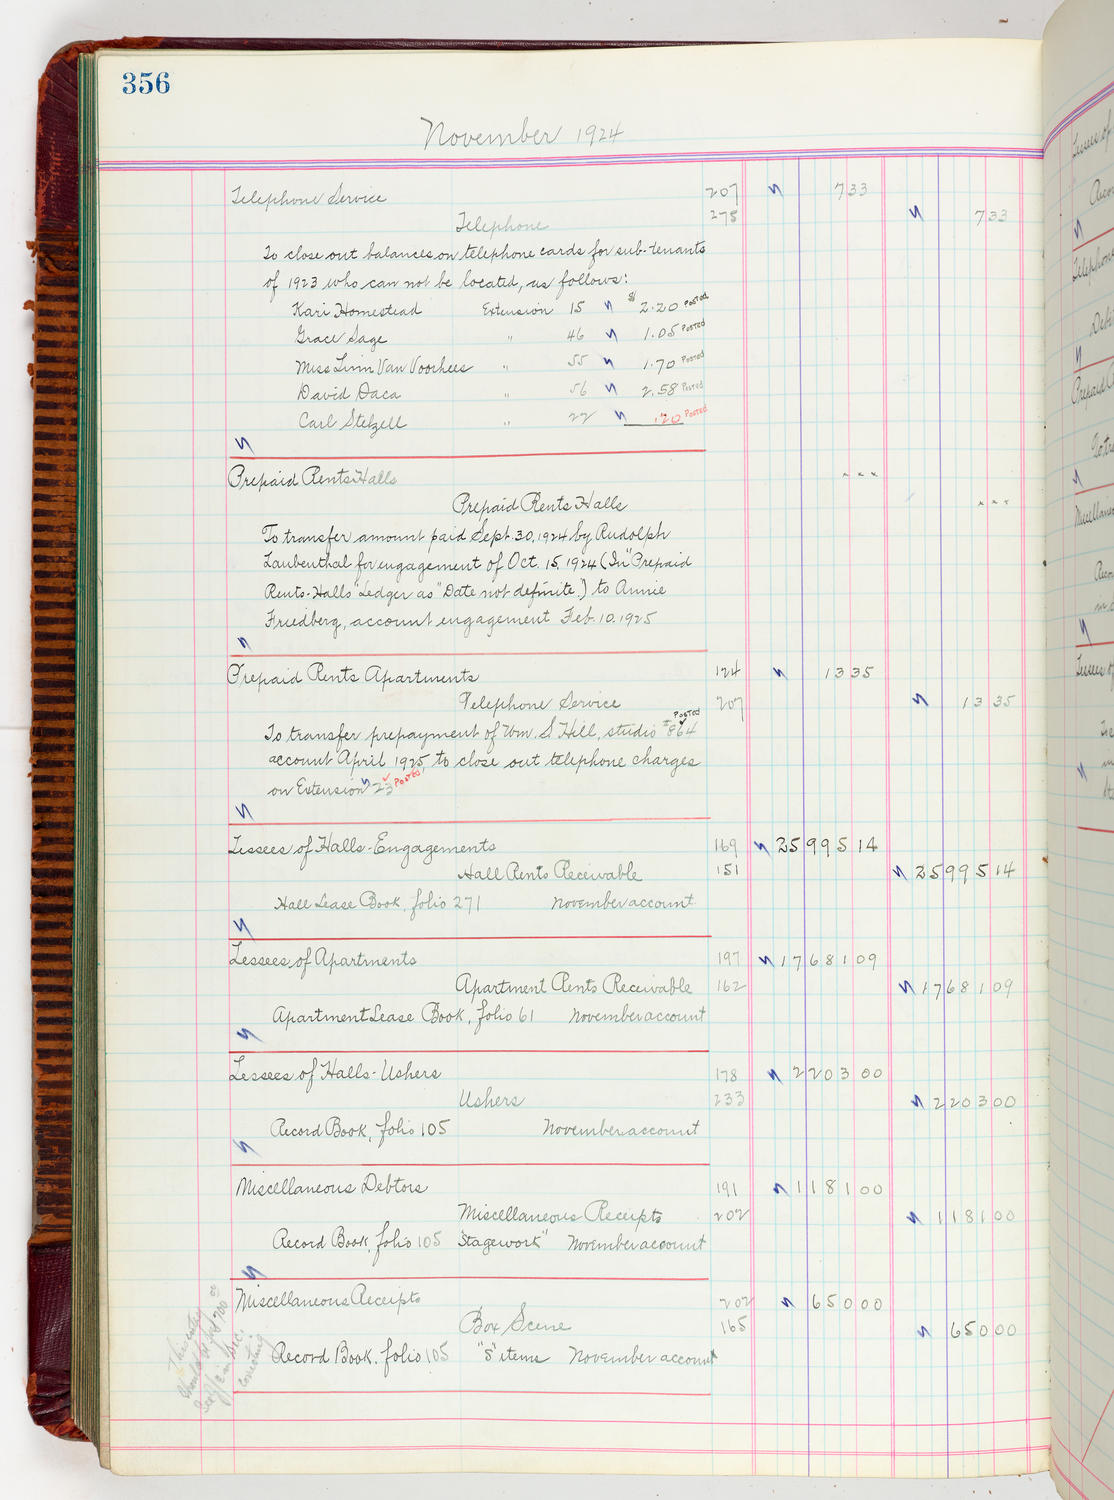 356
November 1924
Telephone Service 207 733
Telephone 278 733
To close out balances on telephone cards for sub-tenants
of 1923 who can not be located, as follows:
Kari Homestead Extension 15 $ 2.20 Posted
Grace Sage " 46 1.05 Posted
Miss Linn Van Voorhees " 55 1.70 Posted
David Daca " 56 2.58 Posted
Carl Stelzell " 22 .20 Posted
Prepaid Rents Halls x x x
Prepaid Rents Halls x x x
To transfer amount paid Sept. 30, 1924 by Rudolph
Laubenthal for engagement of Oct. 15, 1924 (In "Prepaid
Rents-Halls" Ledger as "Date not definite.") to Annie
Friedberg, account engagement Feb. 10. 1925
Prepaid Rents Apartments 124 13 35
Telephone Service 207 13 35
To transfer prepayment of Wm. S Hill, studio #864 Posted
account April 1925, to close out telephone charges
on Extension 23 Posted
Lessees of Halls-Engagements 169 25995 14
Hall Rents Receivable 151 25995 14
Hall Lease Book, folio 271 November account
Lessees of Apartments 197 17681 09
Apartment Rents Receivable 162 17681 09
Apartment Lease Book, folio 61 November account
Lessees of Halls-Ushers 178 2203 00
Ushers 233 2203 00
Record Book, folio 105 November account
Miscellaneous Debtors 191 1181 00
Miscellaneous Receipts 202 1181 00
Record Book, folio 105 "Stagework" November account
Miscellaneous Receipts 202 650 00
Box Scene 165 650 00
Record Book, folio 105 "S" items November account
This entry
should be for $700 00
See J/E in Dec.
correcting